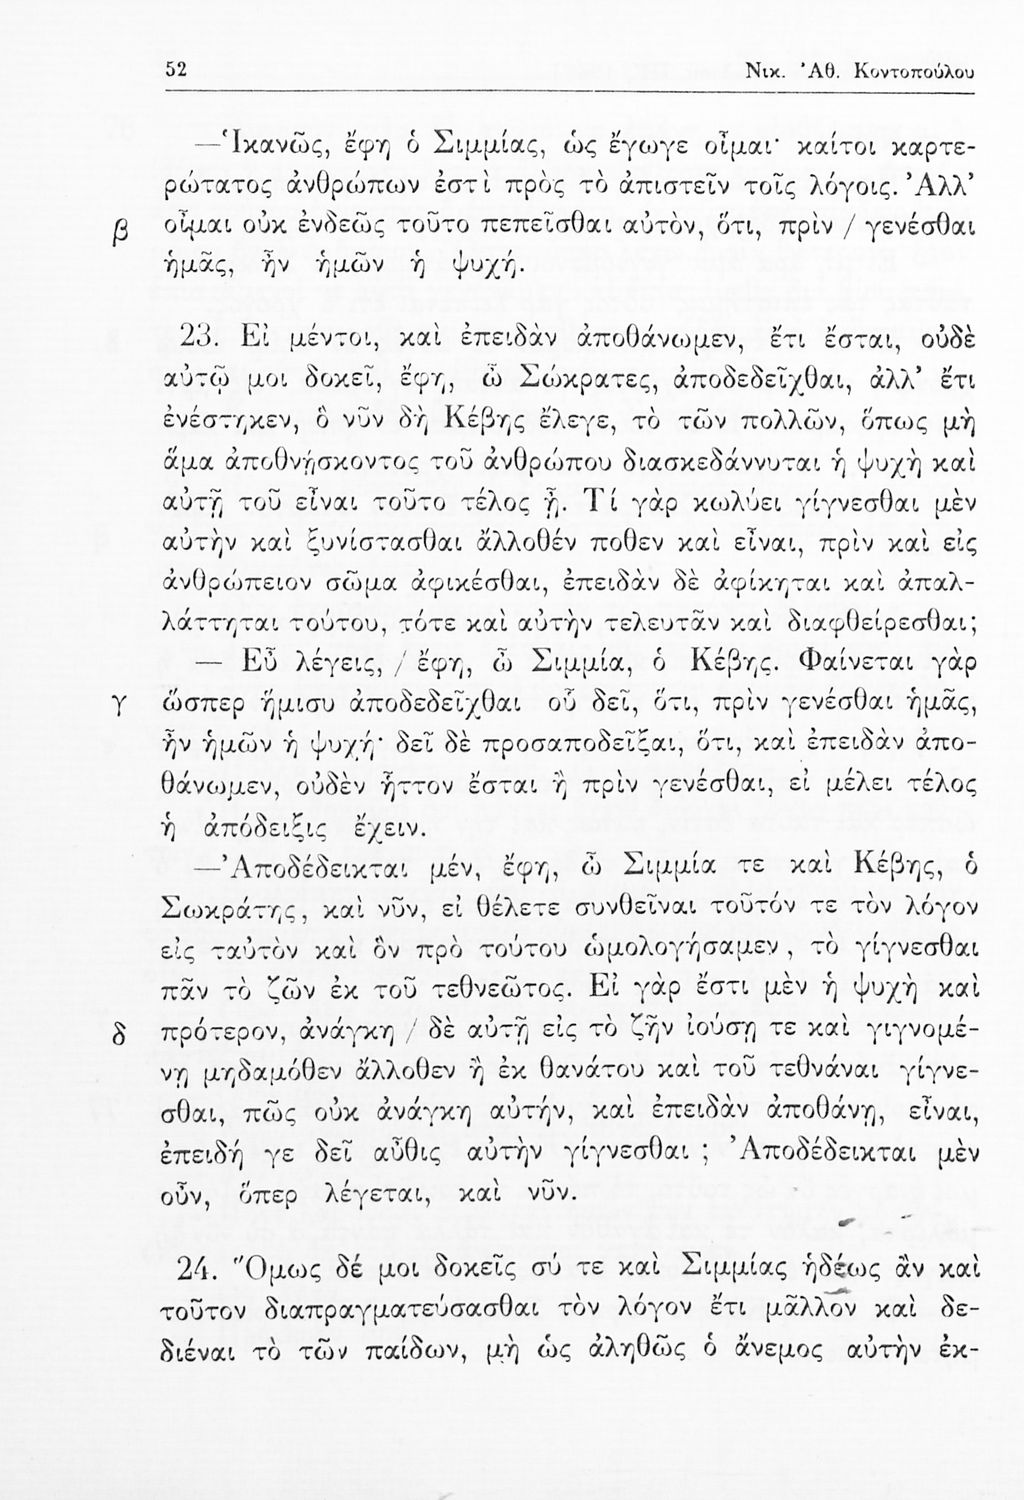 52 Νικ. Ἀθ. Κοντοπούλου
—Ἱκανῶς, ἔφη ὁ Σιμμίας, ὡς ἔγωγε οἶμαι· καίτοι καρτε-
ρώτατος ἀνθρώπων ἐστὶ πρὸς τὸ ἀπιστεῖν τοῖς λόγοις. Ἀλλ’
β οἶμαι οὐκ ἐνδεῶς τοῦτο πεπεῖσθαι αὐτὸν, ὅτι, πρὶν / γενέσθαι
ἡμᾶς, ἦν ἡμῶν ἡ ψυχή.
23. Εἰ μέντοι, καὶ ἐπειδὰν ἀποθάνωμεν, ἔτι ἔσται, οὐδὲ
αὐτῷ μοι δοκεῖ, ἔφη, ὦ Σώκρατες, ἀποδεδεῖχθαι, ἀλλ’ ἔτι
ἐνέστηκεν, ὃ νῦν δὴ Κέβης ἔλεγε, τὸ τῶν πολλῶν, ὅπως μὴ
ἅμα ἀποθνήσκοντος τοῦ ἀνθρώπου διασκεδάννυται ἡ ψυχὴ καὶ
αὐτῇ τοῦ εἶναι τοῦτο τέλος ᾖ. Τί γὰρ κωλύει γίγνεσθαι μὲν
αὐτὴν καὶ ξυνίστασθαι ἄλλοθέν ποθεν καὶ εἶναι, πρὶν καὶ εἰς
ἀνθρώπειον σῶμα ἀφικέσθαι, ἐπειδὰν δὲ ἀφίκηται καὶ ἀπαλ-
λάττηται τούτου, τότε καὶ αὐτὴν τελευτᾶν καὶ διαφθείρεσθαι;
— Εὖ λέγεις, / ἔφη, ὦ Σιμμία, ὁ Κέβης. Φαίνεται γὰρ
γ ὥσπερ ἥμισυ ἀποδεδεῖχθαι οὗ δεῖ, ὅτι, πρὶν γενέσθαι ἡμᾶς,
ἦν ἡμῶν ἡ ψυχή· δεῖ δὲ προσαποδεῖξαι, ὅτι, καὶ ἐπειδὰν ἀπο-
θάνωμεν, οὐδὲν ἧττον ἔσται ἢ πρὶν γενέσθαι, εἰ μέλει τέλος
ἡ ἀπόδειξις ἔχειν.
—Ἀποδέδεικται μέν, ἔφη, ὦ Σιμμία τε καὶ Κέβης, ὁ
Σωκράτης, καὶ νῦν, εἰ θέλετε συνθεῖναι τοῦτόν τε τὸν λόγον
εἰς ταὐτὸν καὶ ὃν πρὸ τούτου ὡμολογήσαμεν, τὸ γίγνεσθαι
πᾶν τὸ ζῶν ἐκ τοῦ τεθνεῶτος. Εἰ γὰρ ἔστι μὲν ἡ ψυχὴ καὶ
δ πρότερον, ἀνάγκη / δὲ αὐτῇ εἰς τὸ ζῆν ἰούσῃ τε καὶ γιγνομέ-
νῃ μηδαμόθεν ἄλλοθεν ἢ ἐκ θανάτου καὶ τοῦ τεθνάναι γίγνε-
σθαι, πῶς οὐκ ἀνάγκη αὐτήν, καὶ ἐπειδὰν ἀποθάνῃ, εἶναι,
ἐπειδή γε δεῖ αὖθις αὐτὴν γίγνεσθαι ; Ἀποδέδεικται μὲν
οὖν, ὅπερ λέγεται, καὶ νῦν.
24. Ὅμως δέ μοι δοκεῖς σύ τε καὶ Σιμμίας ἡδέως ἂν καὶ
τοῦτον διαπραγματεύσασθαι τὸν λόγον ἔτι μᾶλλον καὶ δε-
διέναι τὸ τῶν παίδων, μὴ ὡς ἀληθῶς ὁ ἄνεμος αὐτὴν ἐκ-